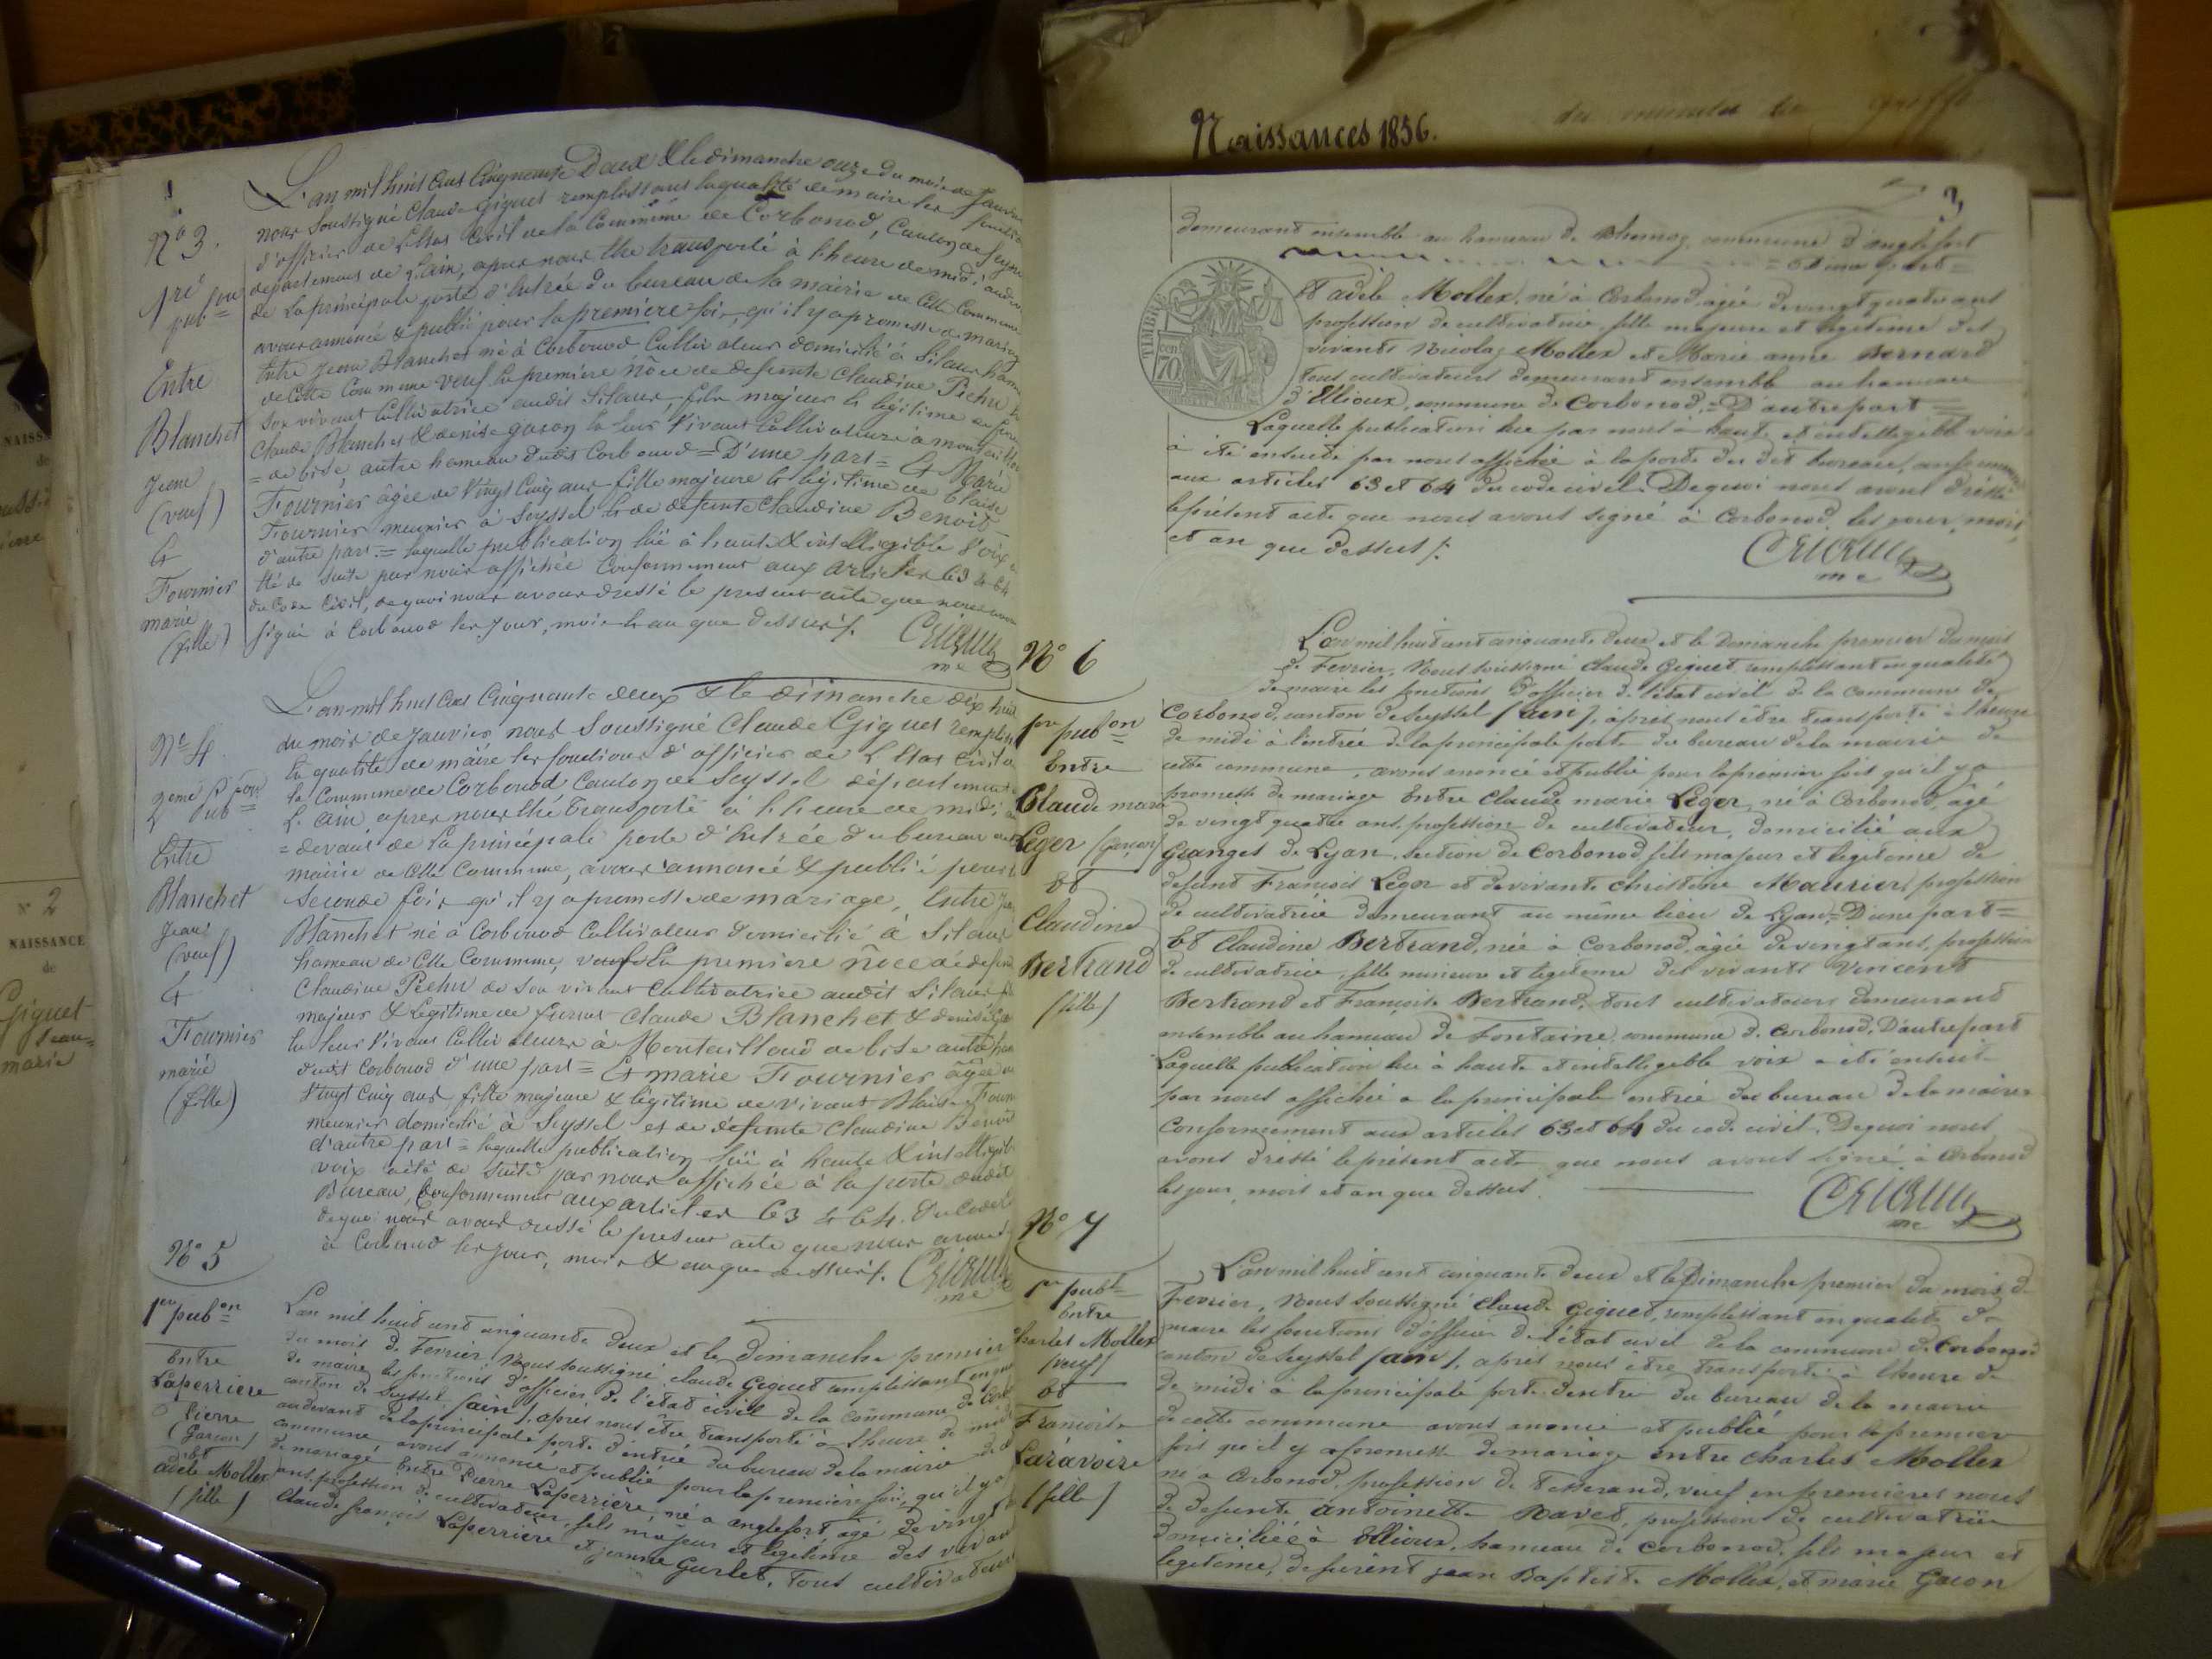 Naissances 1856.
N° 3.
1re pubon
Entre
Blanchet
Jean
(veuf)
&
Fournier
marie
(fille)
L'an mil huit cens Cinquante Deux & le dimanche onze du mois de Janvier
nous soussigné Claude Giguet remplissant la qualité de maire les fonctions
d'officier de L'Etat Civil de la Commune de Corbonod, Canton de Seyssel
département de L'ain, apres nous etre transporté à L'heure de midi, au devant
de La principale porte d'Entrée du bureau de la mairie de Cette Commune
avons annoncé & publié pour la premiere fois, qu'il y a promesse de mariage
Entre Jean Blanchet né à Corbonod Cultivateur domicilié à Silans hameau
de Cette Commune veuf En premiere nôce de defunte Claudine Pichu de
son vivant Cultivatrice audit Silans, fils majeur & légitime de furent
Claude Blanchet & denise gacon En leur Vivant Cultivateurs à montaillou
= de bise, autre hameau dudit Corbonod = D'une part = & Marie
Fournier âgée de Vingt Cinq ans, fille majeure & légitime de blaise
Fournier meunier à Seyssel & de defunte Claudine Benoit
d'autre part. = laquelle publication lue à haute & intelligible Voix a
été de suite par nous affichée Conformement aux articles 63 & 64
du Code Civil, de quoi nous avons dressé le present acte que nous avons
signé à Corbonod les jour, mois & an que dessus /.
me
N° 4.
2eme pubon
Entre
Blanchet
Jean
(veuf)
&
Fournier
marie
(fille)
L'an mil huit cens Cinquante deux & le dimanche dix huit
du mois de janvier nous soussigné Claude Giguet rempliss
la qualité de maire les fonctions d'officier de L'Etat Civil d
la Commune de Corbonod Canton de Seyssel département
L'ain apres nous etre transporté à L'heure de midi, au
= devant de la principale porte d'Entrée du bureau de la
mairie de Cette Commune, avons annoncé & publié pour l
seconde fois qu'il y a promesse de mariage, Entre Jean
Blanchet né à Corbonod Cultivateur domicilié à Silans
hameau de Cette Commune, veuf En premiere nôce de defun
Claudine Pichu de son vivant Cultivatrice audit Silans fils
majeur & Légitime de furent Claude Blanchet & denise Gacon
En leur Vivant Cultivateurs à Montaillou de bise autre ham
dudit Corbonod d'une part = & marie Fournier âgée de
Vingt Cinq ans, fille majeure & légitime de vivant Blaise Fourn
meunier domicilié à Seyssel et de defunte Claudine Benoit
d'autre part = laquelle publication lue à haute & intelligibl
voix a été de suite par nous affichée à la porte dudit
Bureau, Conformement aux articles 63 & 64. du Code Ci
de quoi nous avons dressé le present acte que nous avons
à Corbonod les jour, mois & an que dessus /.
me
N° 5
1ere pubon
Entre
Laperriere
Pierre
(Garcon)
et
adele Mollex
(fille)
L'an mil huit cent cinquante deux et le dimanche premier
du mois de Fevrier, Nous soussigné Claude Giguet remplissant en qua
de maire les fonctions d'officier de l'état civil de la commune de Corbo
canton de Seyssel (ain), après nous être transporté à l'heure de midi
au devant de la principale porte d'entrée du bureau de la mairie de
commune, avons annoncé et publié pour la première fois, qu'il y a
de mariage Entre Pierre Laperrière, né à anglefort agé de vingt
ans, profession de cultivateur, fils majeur et légitime des vivan
Claude françois Laperriere et jeanne Gurlet, tous cultivateurs
3
demeurant ensemble au hameau de Rhemoz, commune d'anglefort
= D'une part =
TIMBRE
70
Et adèle Mollex, né à Corbonod, agée de vingt quatre ans
profession de cultivatrice, fille majeure et légitime des
vivants Nicolas Mollex et Marie anne Bernard
tous cultivateurs demeurant ensemble au hameau
d'Ellioux, commune de Corbonod, = D'autre part =
Laquelle publication lue par nous à haute et intelligible voix
à été ensuite par nous affichée à la porte du dit bureau, conformément
aux articles 63 et 64 du code civil. De quoi nous avons dressé
le présent acte que nous avons signé à Corbonod, les jour, mois
et an que dessus /.
me
N° 6
1re pubon
Entre
Claude marie
Leger (garçon)
Et
Claudine
Bertrand
(fille)
L'an mil huit cent cinquante deux et le Dimanche premier du mois
de Fevrier, Nous soussigné Claude Giguet remplissant en qualité
de maire les fonctions d'officier de l'état civil de la commune de
Corbonod, canton de Seyssel (ain), après nous être transporté à l'heure
de midi à l'entrée de la principale porte du bureau de la mairie de
cette commune, avons anoncé et publié pour la premier fois qu'il y a
promesse de mariage Entre Claude marie Léger, né à Corbonod, agé
de vingt quatre ans, profession de cultivateur, domicilié aux
Granges de Lyan, section de Corbonod, fils majeur et légitime de
defunt François Léger et de vivante Christine Maurier, profession
de cultivatrice demeurant au même lieu de Lyan, = D'une part =
Et Claudine Bertrand, née à Corbonod, agée de vingt ans, profession
de cultivatrice, fille mineure et légitime des vivants Vincent
Bertrand et Françoise Bertrand, tous cultivateurs demeurant
ensemble au hameau de Fontaine, commune de Corbonod, D'autre part
Laquelle publication lue à haute et intelligible voix a été ensuite
par nous affichée a la principale entrée du bureau de la mairie
Conformement aux articles 63 et 64 du code civil. De quoi nous
avons dressé le présent acte que nous avons signé à Corbonod
les jour, mois et an que dessus.
me
N° 7
1re publ
Entre
Charles Mollex
(veuf)
Et
Francoise
Laravoire
(fille)
L'an mil huit cent cinquante deux et le Dimanche premier du mois de
Fevrier, Nous soussigné Claude Giguet, remplissant en qualité de
maire les fonctions d'officier de l'état civil de la commune de Corbonod
canton de Seyssel (ain), après nous être transporté à l'heure de
de midi à la principale porte d'entrée du bureau de la mairie
de cette commune avons anoncé et publié pour la premier
fois qu'il y a promesse de mariage entre Charles Mollex
né a Corbonod, profession de tisserand, veuf en premieres noces
de defunte antoinette Navet, profession de cultivatrice
domiciliée à Ellioux, hameau de Corbonod, fils majeur et
légitime, de furent jean Baptiste Mollex, et marie Gacon
N° 2
NAISSANCE
de
Giguet
Jean=
marie